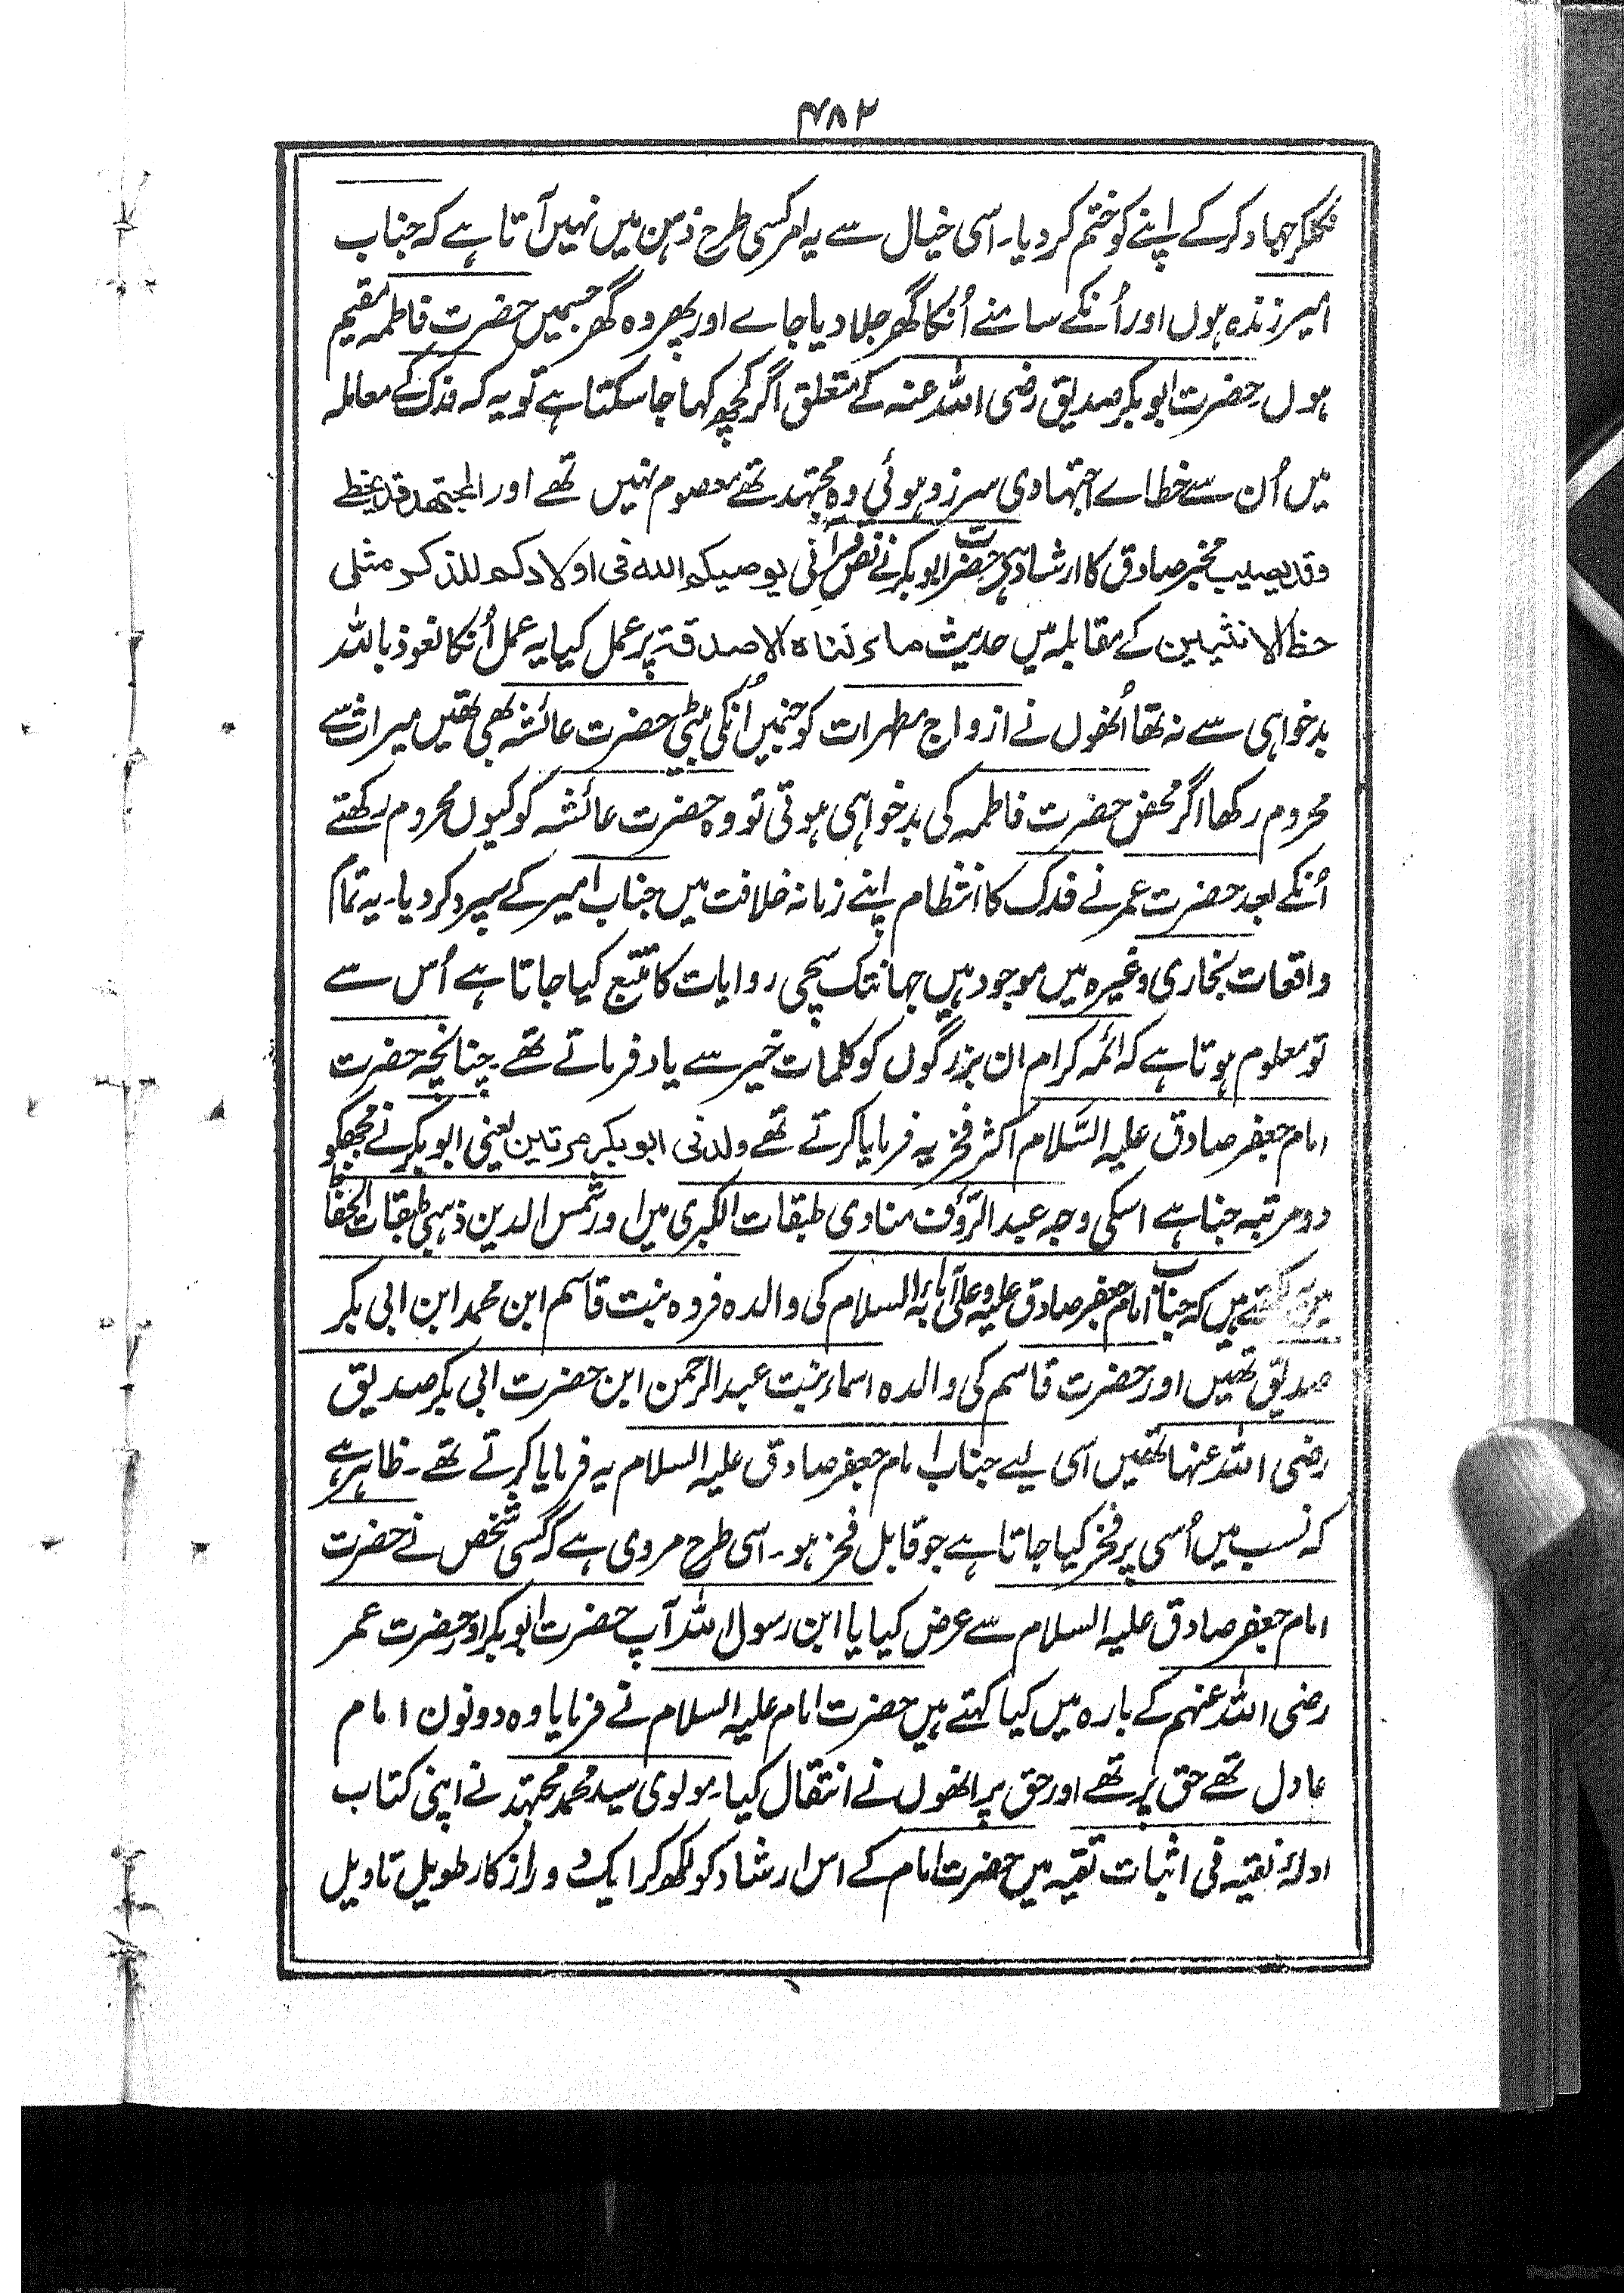 ۴۸۲
نکلکر جہاد کرکے اپنے کو ختم کر دیا۔ اسی خیال سے یہ امر کسی طرح ذہن میں نہیں آتا ہے کہ جناب
امیر زندہ ہوں اور اُنکے سامنے اُنکا گھر جلا دیا جاے اور پھر وہ گھر جسمیں حضرت فاطمہ مقیم
ہوں حضرت ابو بکر صدیق رضی اللہ عنہ کے متعلق اگر کچھ کہا جا سکتا ہے تو یہ کہ فدک کے معاملہ
میں اُن سے خطاے اجتہادی سرزد ہوئی وہ مجتہد تھے معصوم نہیں تھے اور المجتھد قد یخطے
وقد یصیب مخبر صادق کا ارشاد ہی حضرت ابو بکر نے نص قرآنی یوصیکم اللہ فی اولادکم للذکر مثلی
حظ الانثیین کے مقابلہ میں حدیث ماترکناہ الاصدقۃ پر عمل کیا یہ عمل اُنکا نعوذ باللہ
بدخواہی سے نہ تھا اُنھوں نے ازواج مطہرات کو جنمیں اُنکی بیٹی حضرت عائشہ بھی تھیں میراث سے
محروم رکھا اگر محض حضرت فاطمہ کی بدخواہی ہوتی تو وہ حضرت عائشہ کو کیوں محروم رکھتے
اُنکے بعد حضرت عمر نے فدک کا انتظام اپنے زمانہ خلافت میں جناب امیر کے سپرد کر دیا۔ یہ تمام
واقعات بخاری وغیرہ میں موجود ہیں جہانتک سچی روایات کا تتبع کیا جاتا ہے اُس سے
تو معلوم ہوتا ہے کہ ائمہ کرام ان بزرگوں کو کلمات خیر سے یاد فرماتے تھے۔ چنانچہ حضرت
امام جعفر صادق علیہ السَّلام اکثر فخریہ فرمایا کرتے تھے ولدنی ابوبکر مرتین یعنی ابو بکر نے مجھکو
دو مرتبہ جنا ہے اسکی وجہ عبد الرؤف مناوی طبقات الکبری میں اور شمس الدین ذہبی طبقات الحفاظ
میں یہ لکھتے ہیں کہ جناب امام جعفر صادق علیہ وعلی آبائہ السلام کی والدہ فروہ بنت قاسم ابن محمد ابن ابی بکر
صدیق تھیں اور حضرت قاسم کی والدہ اسماء بنت عبدالرحمن ابن حضرت ابی بکر صدیق
رضی اللہ عنہا تھیں اسی لیے جناب امام جعفر صادق علیہ السلام یہ فرمایا کرتے تھے۔ ظاہر ہے
کہ نسب میں اُسی پر فخر کیا جاتا ہے جو قابل فخر ہو۔ اسی طرح مروی ہے کہ کسی شخص نے حضرت
امام جعفر صادق علیہ السلام سے عرض کیا یا ابن رسول اللہ آپ حضرت ابو بکر اور حضرت عمر
رضی اللہ عنہم کے بارہ میں کیا کہتے ہیں حضرت امام علیہ السلام نے فرمایا وہ دونون امام
عادل تھے حق پر تھے اور حق پر انھوں نے انتقال کیا۔ مولوی سید محمد مجتہد نے اپنی کتاب
ادلۂ نقیہ فی اثبات تقیہ میں حضرت امام کے اس ارشاد کو لکھ کر ایک دور از کار طویل تاویل